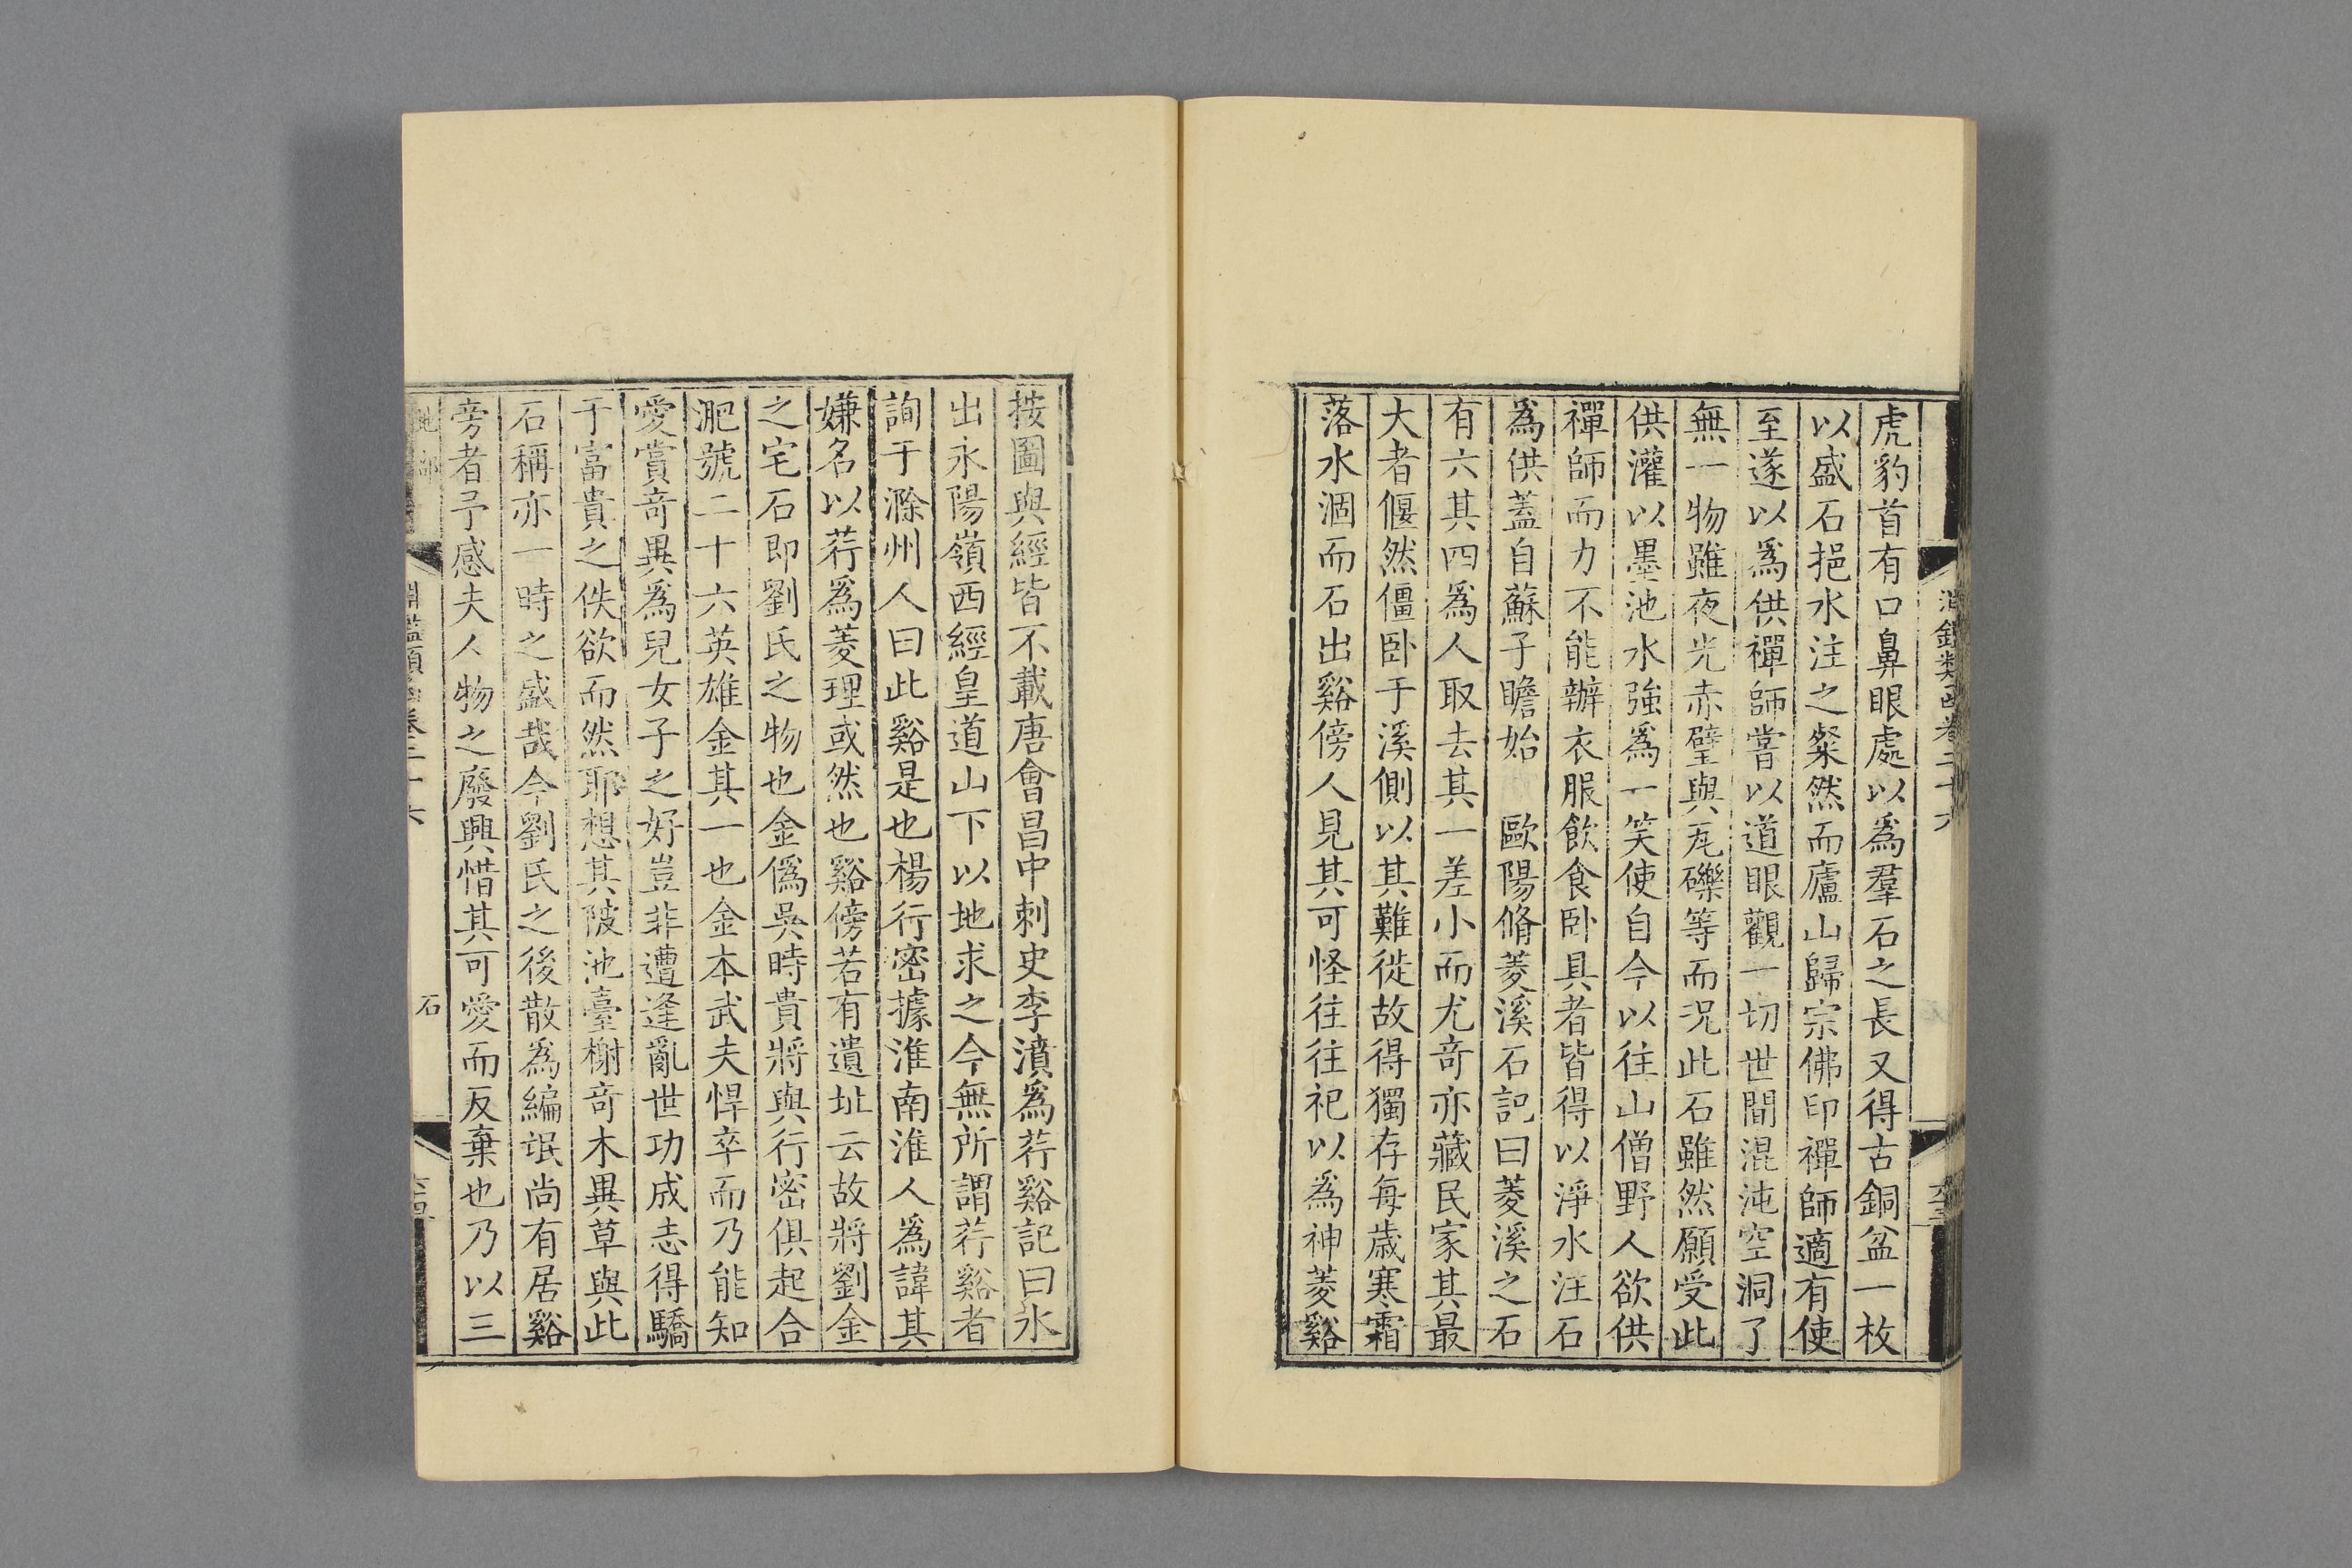 淵鑑類函卷二十六
虎豹首有口鼻眼處以爲羣石之長又得古銅盆一枚
以盛石挹水注之粲然而廬山歸宗佛印禪師適有使
至遂以爲供禪師嘗以道眼觀一切世間混沌空洞了
無一物雖夜光赤璧與瓦礫等而況此石雖然願受此
供灌以墨池水強爲一笑使自今以往山僧野人欲供
禪師而力不能辦衣服飲食卧具者皆得以淨水注石
爲供蓋自蘇子瞻始 歐陽脩菱溪石記曰菱溪之石
有六其四爲人取去其一差小而尤奇亦藏民家其最
大者偃然僵卧于溪側以其難徙故得獨存每歲寒霜
落水涸而石出谿傍人見其可怪往往祀以爲神菱谿
按圖與經皆不載唐會昌中刺史李濆爲荇谿記曰水
出永陽嶺西經皇道山下以地求之今無所謂荇谿者
詢于滁州人曰此谿是也楊行密據淮南淮人爲諱其
嫌名以荇爲菱理或然也谿傍若有遺址云故將劉金
之宅石即劉氏之物也金僞吳時貴將與行密俱起合
淝號三十六英雄金其一也金本武夫悍卒而乃能知
愛賞奇異爲兒女子之好豈非遭逢亂世功成志得驕
于富貴之佚欲而然耶想其陂池臺榭奇木異草與此
石稱亦一時之盛哉今劉氏之後散爲編氓尚有居谿
旁者予感夫人物之廢興惜其可愛而反棄也乃以三
地部 淵鑑類函卷二十六 石